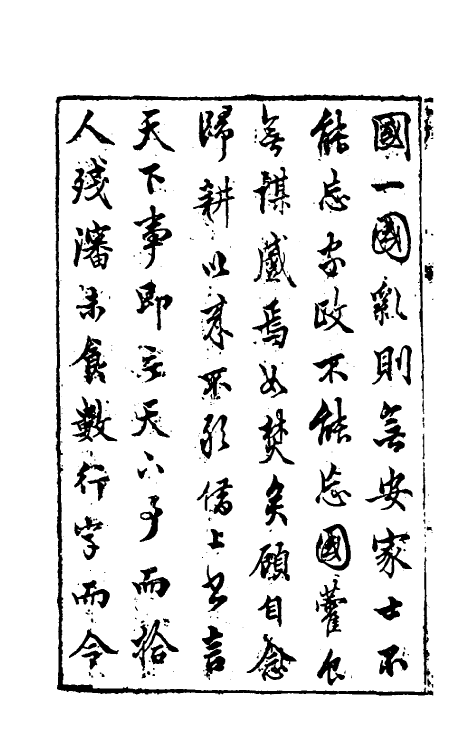 國一國亂則無安家士不
能忘家政不能忘國藿食
無謀慼焉如焚矣顧自念
歸耕以來不敢借上書言
天下事即言天下事而拾
人殘瀋未食數行字而令